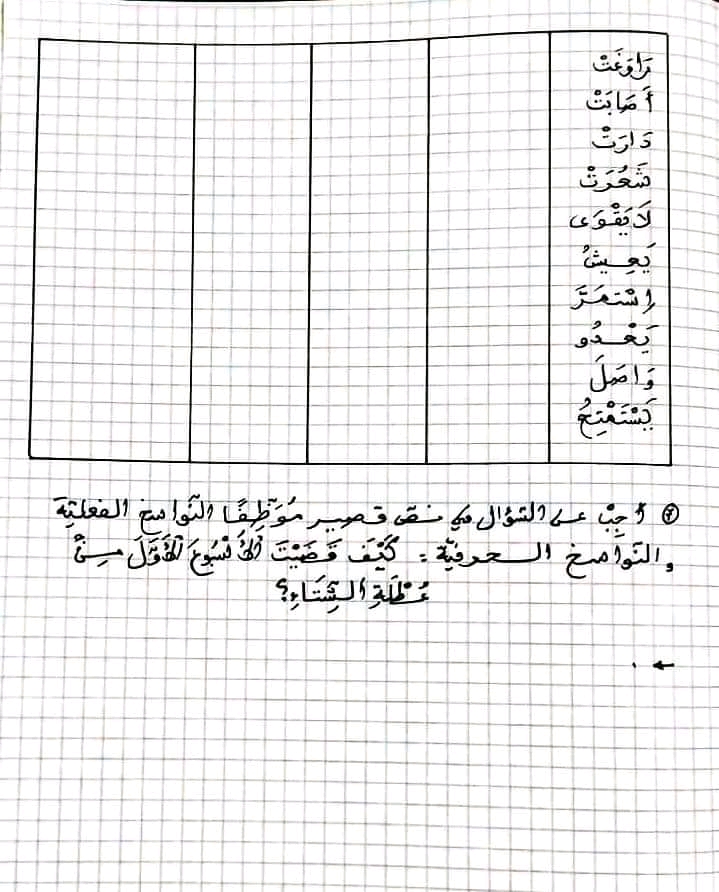 رَاوَغَتْ
أَصَابَتْ
دَارَتْ
شَعُرَتْ
لَا يَقْوَى
يَعِيشُ
اِسْتَمَرَّ
يَغْدُو
وَاصَلَ
يَسْتَمْتِحُ
④ أَجِبْ عن السّؤال في نصّ قصير مُوَظِّفًا النّواسخ الفعليّة
والنّواسخ الحرفيّة : كَيْفَ قَضَيْتَ الْأُسْبُوعَ الْأَوَّلَ مِنْ
عُطْلَةِ الشِّتَاءِ؟
← .